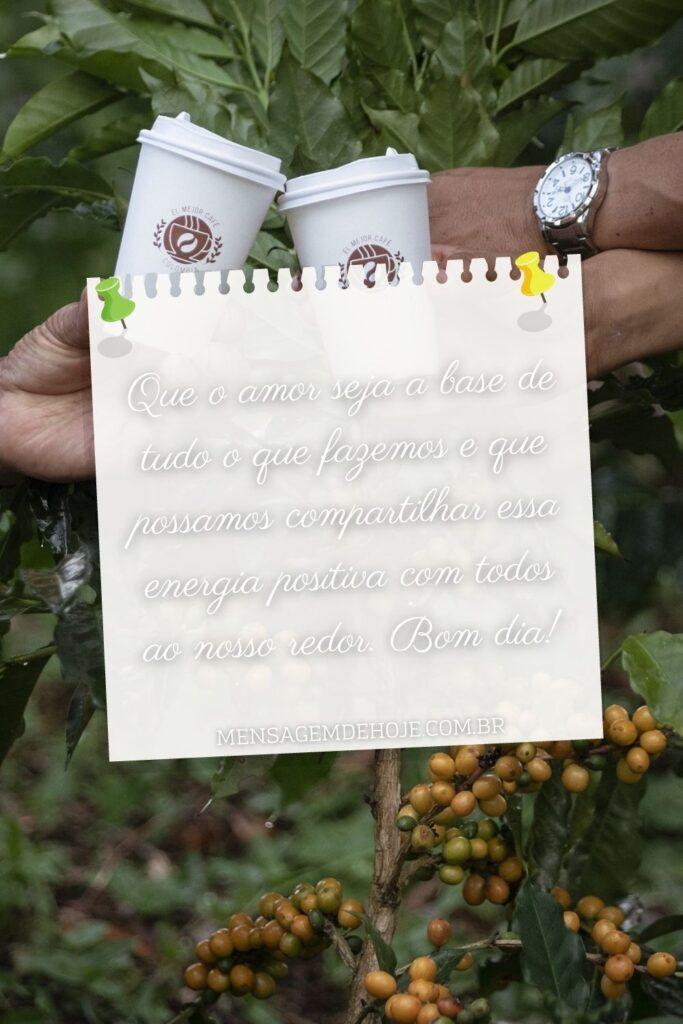 EL MEJOR CAFÉ
COLOMBIA
EL MEJOR CAFÉ
Que o amor seja a base de
tudo o que fazemos e que
possamos compartilhar essa
energia positiva com todos
ao nosso redor. Bom dia!
MENSAGEMDEHOJE.COM.BR